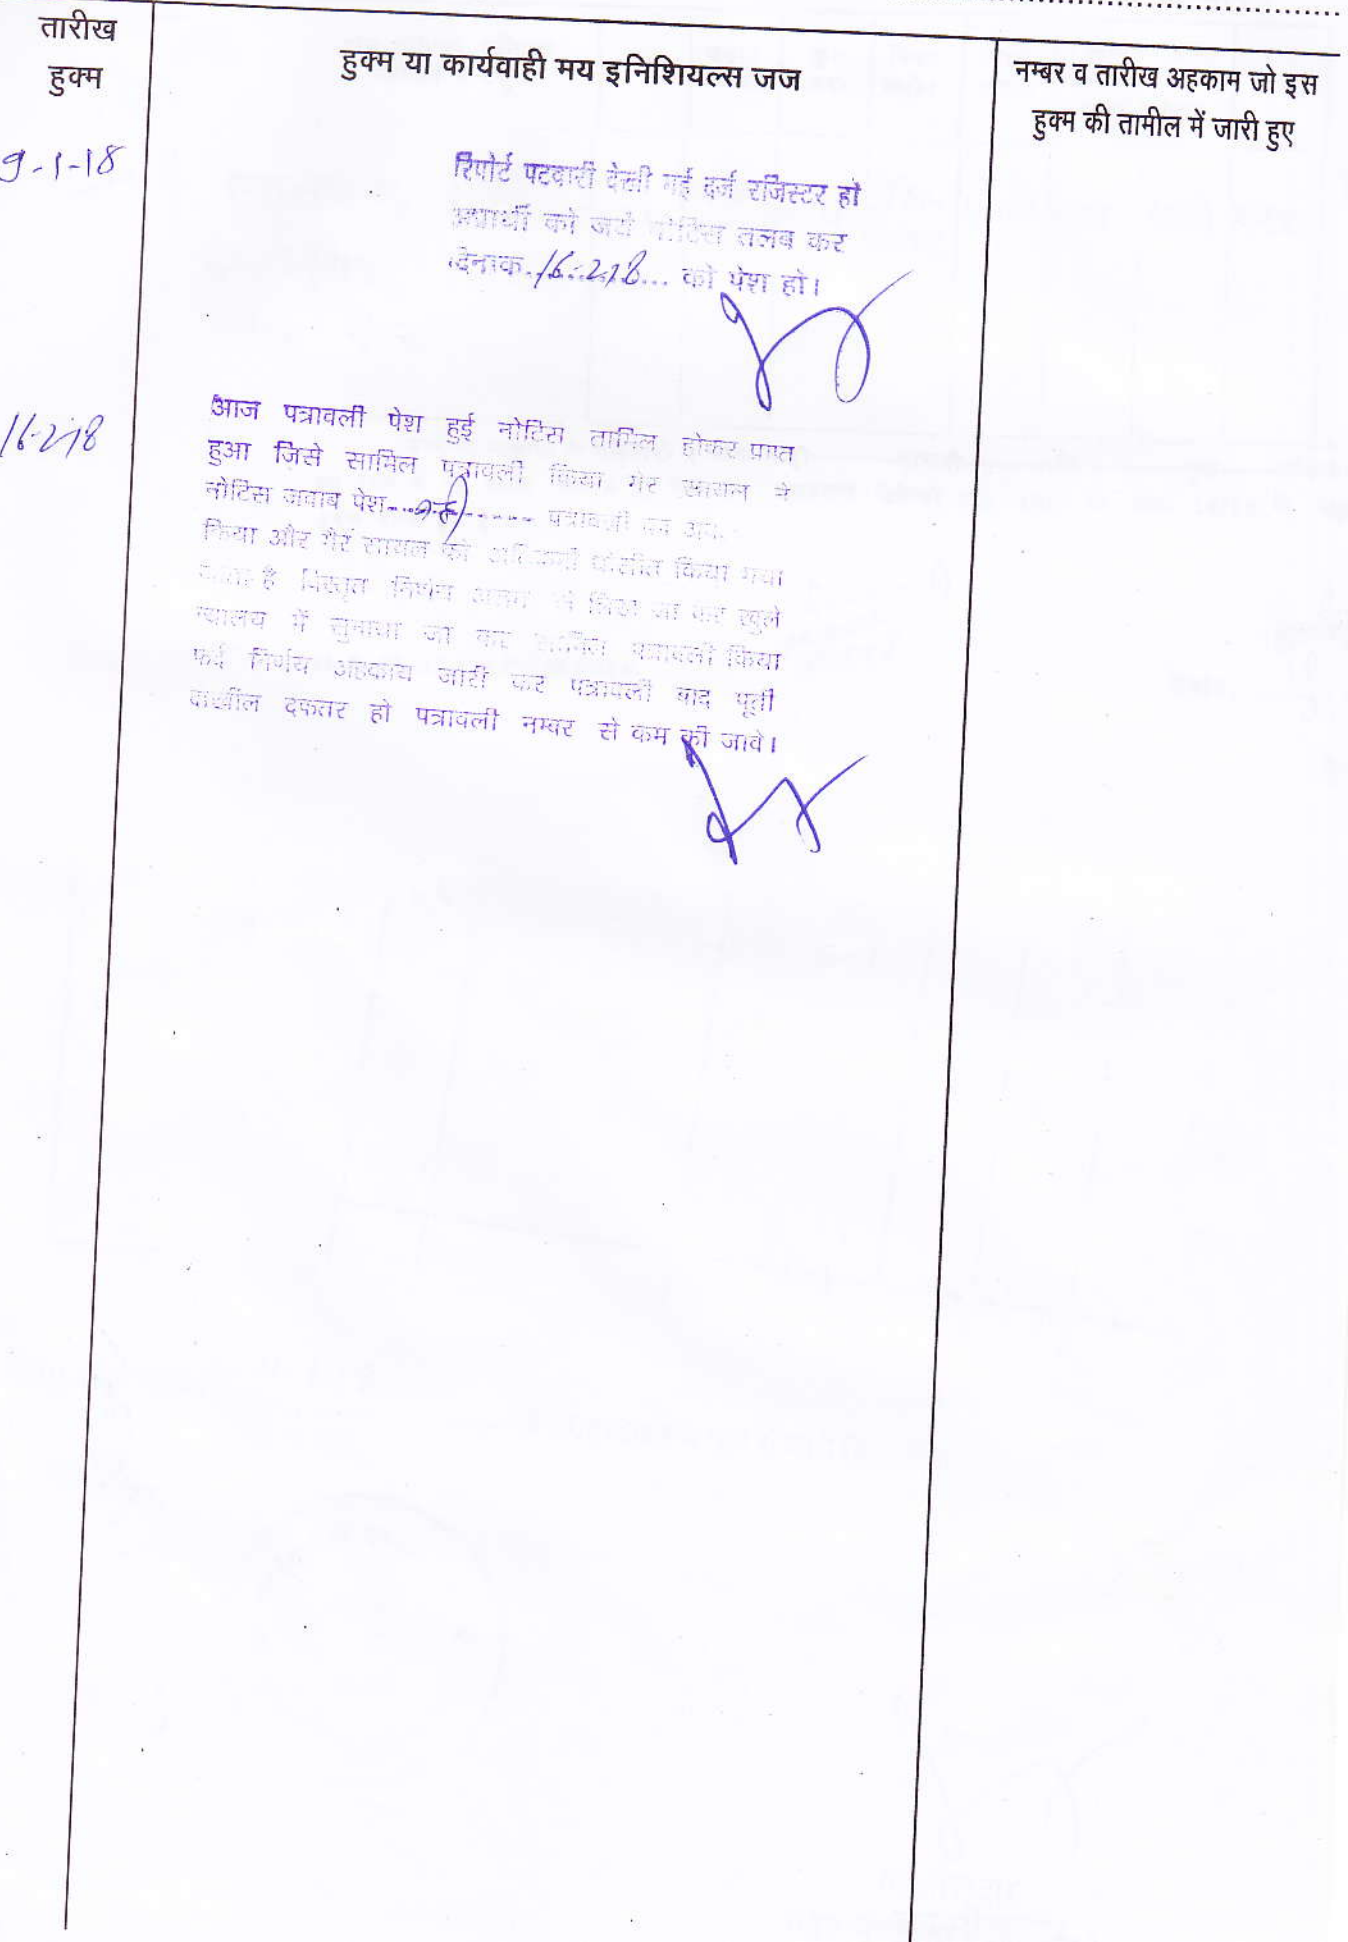 तारीख
हुक्म
हुक्म या कार्यवाही मय इनिशियल्स जज
नम्बर व तारीख अहकाम जो इस
हुक्म की तामील में जारी हुए
9-1-18
रिपोर्ट पटवारी देखी गई दर्ज रजिस्टर हो
अप्रार्थी को जर्ये नोटिस तलब कर
दिनाक 16.2.18 को पेश हो।
16-2-18
आज पत्रावली पेश हुई नोटिस तामिल होकर प्राप्त
हुआ जिसे सामिल पत्रावली किया गैर सायल ने
नोटिस जवाब पेश पत्रावली
किया और गैर सायल को किया गया
जाता है विस्तृत निर्णय अलग से लिखा जा कर खुले
न्यालय में सुनाया जा कर सामिल पत्रावली किया
निर्णय अहकाम जारी कर पत्रावली बाद पूर्ती
दाखील दफतर हो पत्रावली नम्बर से कम की जावे।